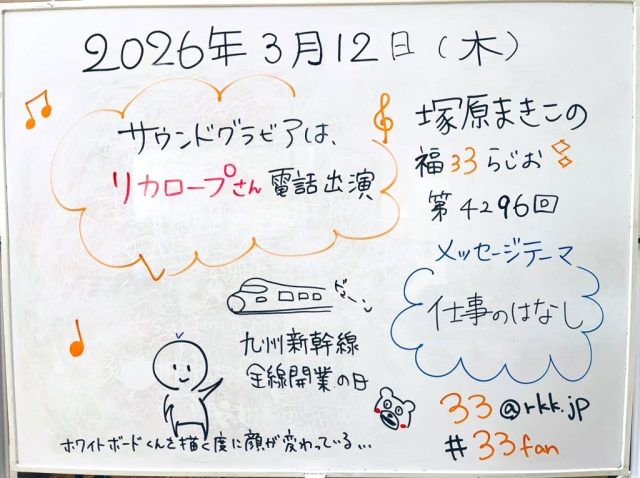 2026年3月12日(木)
サウンドグラビアは、
リカロープさん 電話出演
塚原まきこの
福33らじお
第4296回
メッセージテーマ
仕事のはなし
ビューン
九州新幹線
全線開業の日
33@rkk.jp
#33fan
ホワイトボードくんを描く度に顔が変わっている...